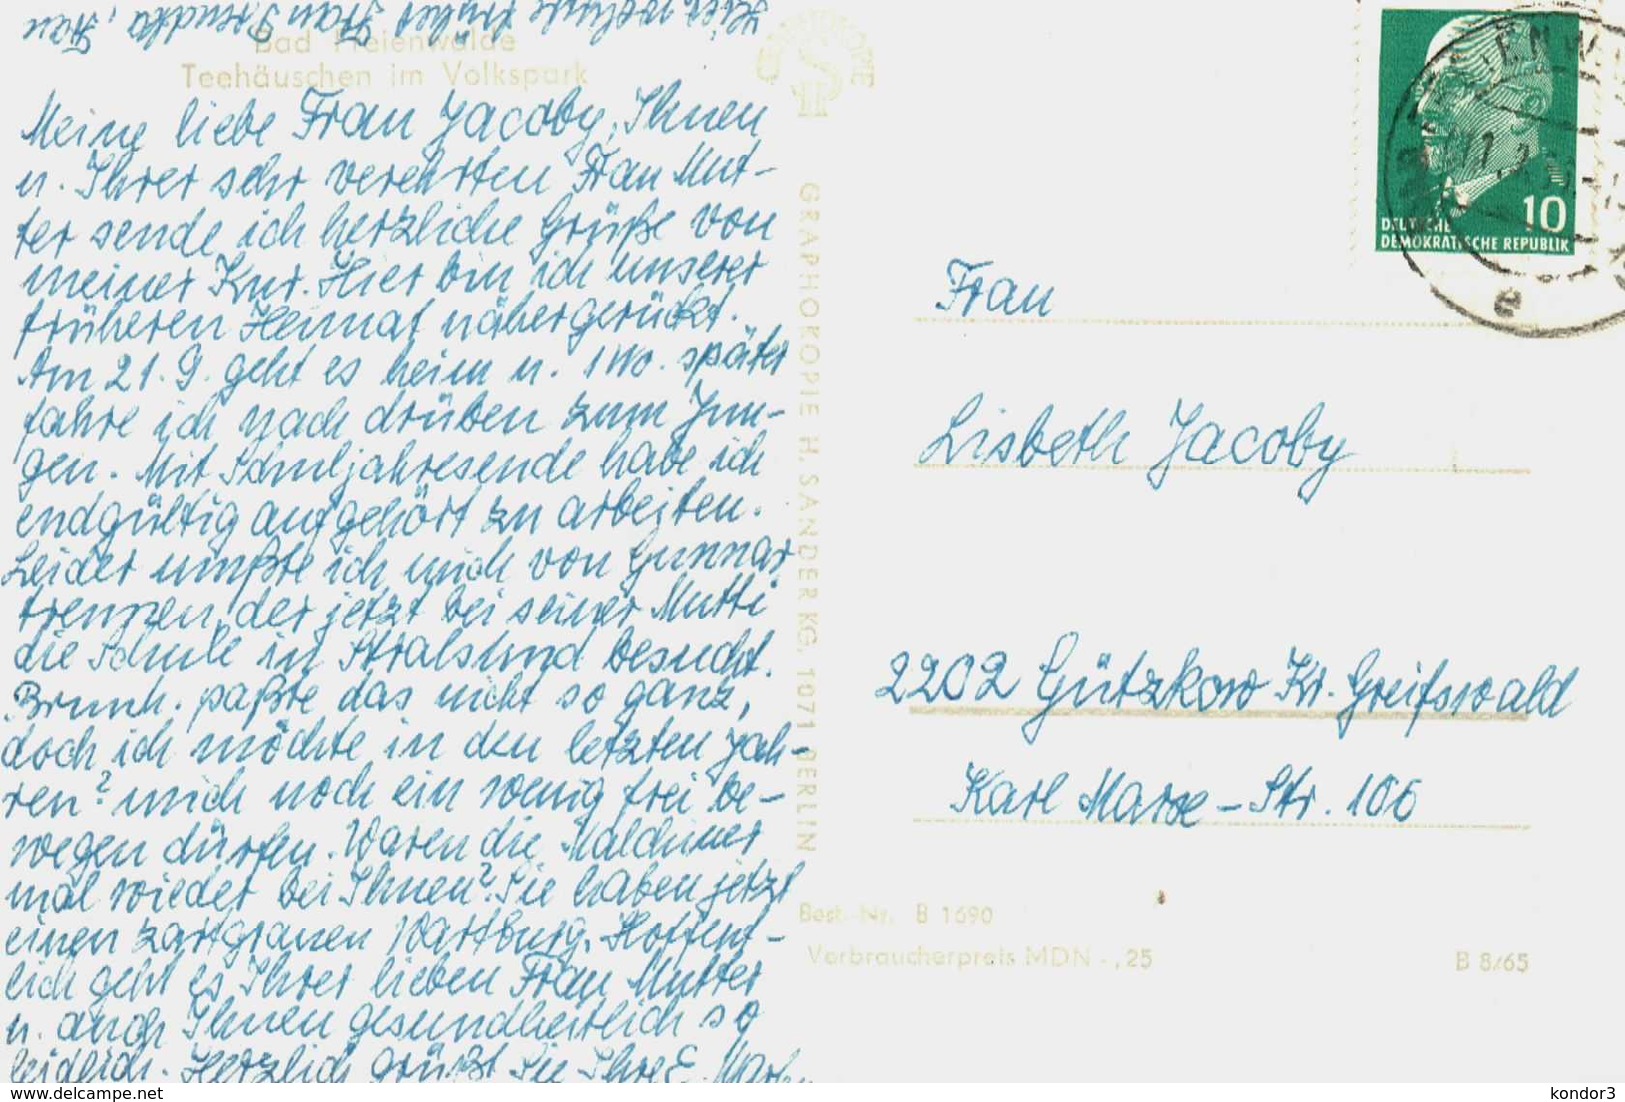 Bad Freienwalde
Teehäuschen im Volkspark
Meine liebe Frau Jacoby, Ihnen
u. Ihrer sehr verehrten Frau Mut-
ter sende ich herzliche Grüße von
meiner Kur. Hier bin ich unserer
früheren Heimat nähergerückt.
Am 21. 9. geht es heim u. 1 Wo. später
fahre ich nach drüben zum Jun-
gen. Mit Schuljahresende habe ich
endgültig aufgehört zu arbeiten.
Leider mußte ich mich von Gunnar
trennen, der jetzt bei seiner Mutti
die Schule in Stralsund besucht.
Brunh. paßte das nicht so ganz,
doch ich möchte in den letzten Jah-
ren? mich noch ein wenig frei be-
wegen dürfen. Waren die Malchiner
mal wieder bei Ihnen? Sie haben jetzt
einen zartgrauen Wartburg. Hoffent-
lich geht es Ihrer lieben Frau Mutter
u. auch Ihnen gesundheitlich so
leidlich. Herzlich grüßt Sie Ihre E.
GRAPHOKOPIE H. SANDER KG, 1071 BERLIN
DEUTSCHE
DEMOKRATISCHE REPUBLIK
10
e
Frau
Lisbeth Jacoby
2202 Gützkow Kr. Greifswald
Karl Marx-Str. 106
Best.-Nr. B 1690
Verbraucherpreis MDN -,25
B 8/65
kondor3